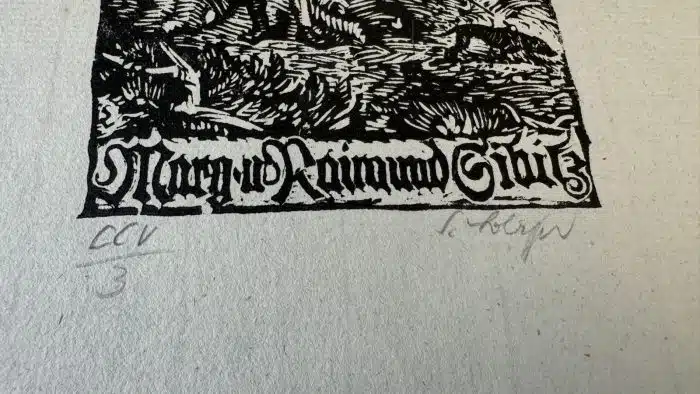 Marg. u Raimund Sibitz
CCV
3